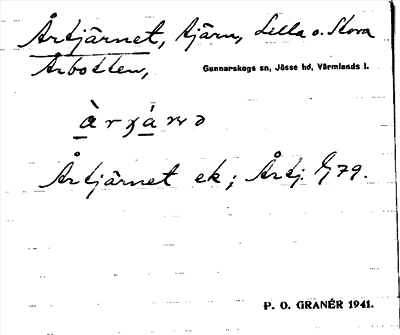 Årtjärnet, tjärn, Lilla o. Stora
Årbotten,
Gunnarskogs sn, Jösse hd, Värmlands l.
Årtjärnet ek; Årtj. G 79.
P. O. GRANÉR 1941.